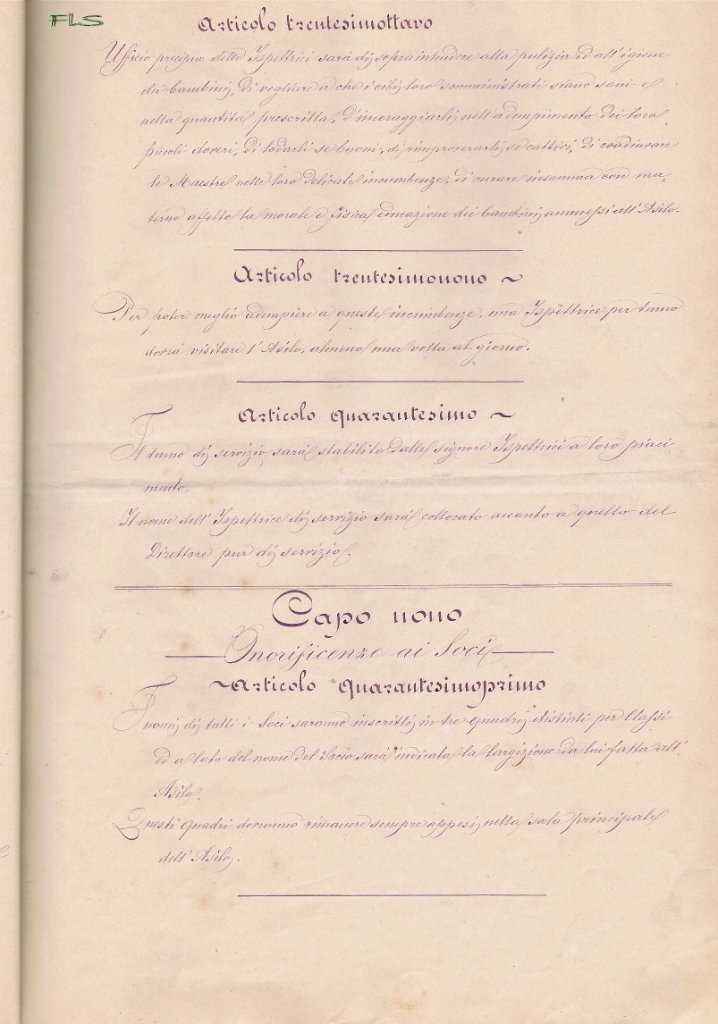 FLS
Articolo trentesimottavo
Ufficio precipuo delle Ispettrici sarà di sopraintendere alla pulizia ed all'igiene
dei bambini, di vegliare a che i cibi loro somministrati siano sani e
nella quantità prescritta, d'incoraggiarli nell'adempimento dei loro
piccoli doveri, di lodarli se buoni, di rimproverarli se cattivi, di coadiuvare
le Maestre nelle loro delicate incumbenze, di curare insomma con ma-
terno affetto la morale e fisica educazione dei bambini ammessi all'Asilo.
Articolo trentesimonono ~
Per poter meglio adempiere a queste incumbenze, una Ispettrice per turno
dovrà visitare l'Asilo, almeno una volta al giorno.
Articolo quarantesimo ~
Il turno di servizio sarà stabilito dalle signore Ispettrici a loro piaci-
mento.
Il nome dell'Ispettrice di servizio sarà collocato accanto a quello del
Direttore pur di servizio.
Capo nono
Onorificenze ai Soci
~Articolo quarantesimoprimo
I nomi di tutti i Soci saranno inscritti in tre quadri distinti per Classi
ed a lato del nome del Socio sarà indicata la largizione da lui fatta all'
Asilo.
Questi quadri dovranno rimanere sempre appesi nella sala principale
dell'Asilo.